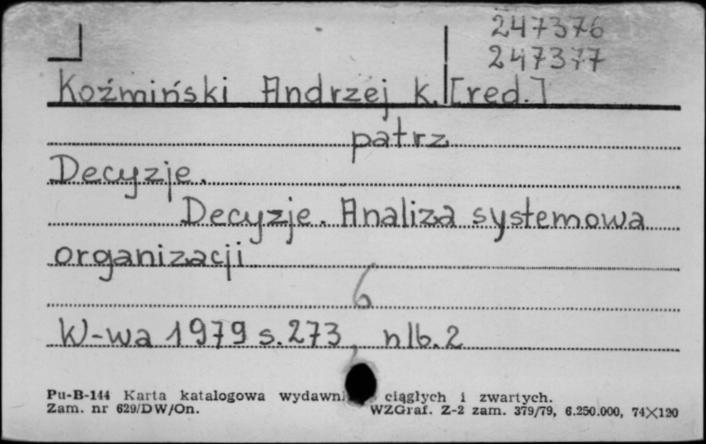 247376
247377
Koźmiński Andrzej K. [red.]
patrz
Decyzje.
Decyzje. Analiza systemowa
organizacji
6
W-wa 1979 s.273, nlb.2
Pu-B-144 Karta katalogowa wydawni ciągłych i zwartych.
Zam. nr 629/DW/On. WZGraf. Z-2 zam. 379/79, 6.250.000, 74×120